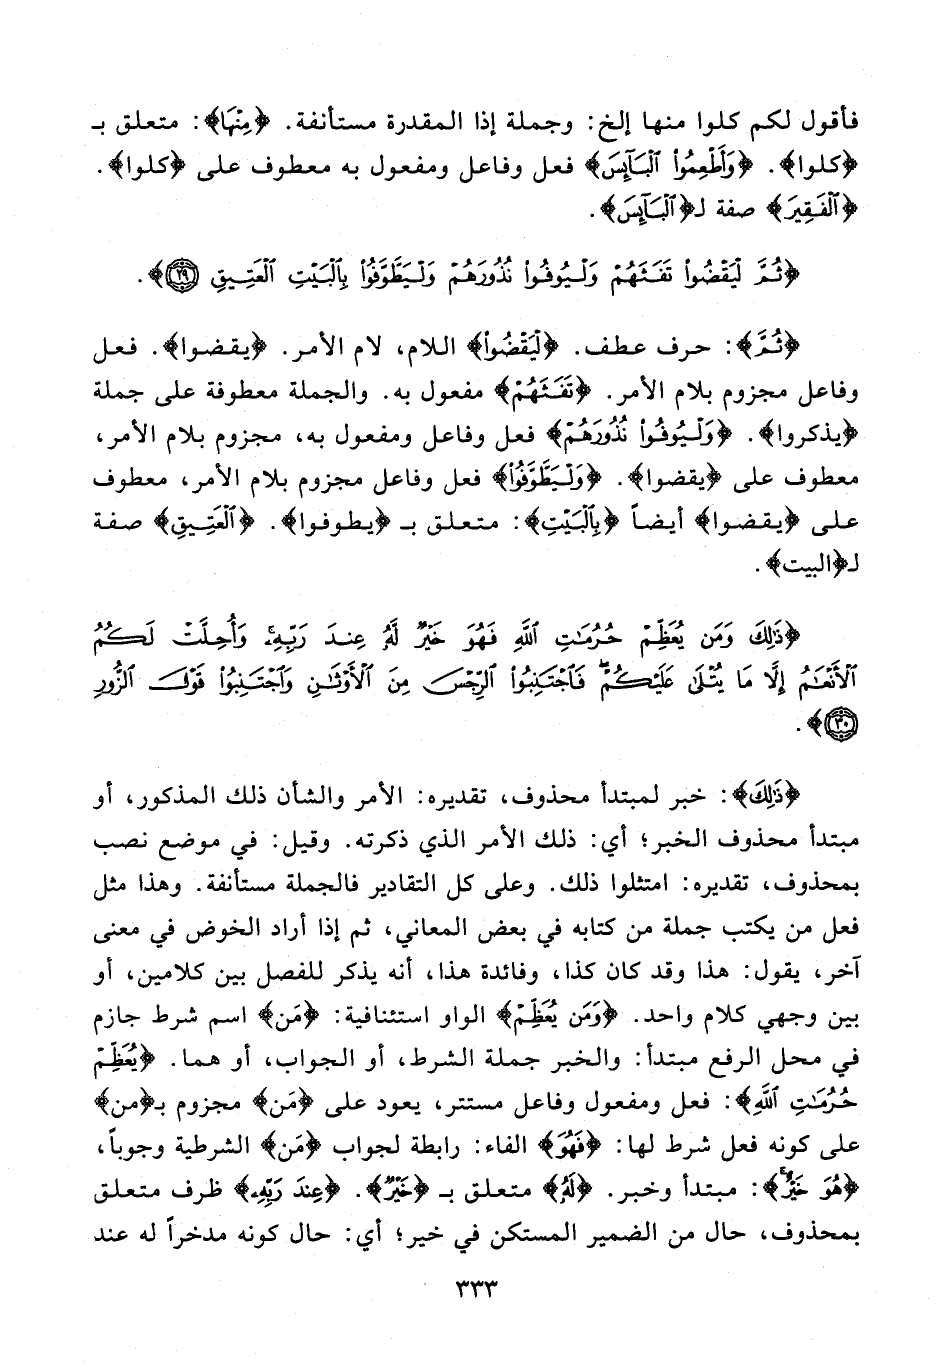 فأقول لكم كلوا منها إلخ: وجملة إذا المقدرة مستأنفة. ﴿مِنْهَا﴾: متعلق بـ
﴿كلوا﴾. ﴿وَأَطْعِمُوا۟ ٱلْبَآئِسَ﴾ فعل وفاعل ومفعول به معطوف على ﴿كلوا﴾.
﴿ٱلْفَقِيرَ﴾ صفة لـ﴿ٱلْبَآئِسَ﴾.
﴿ثُمَّ لْيَقْضُوا۟ تَفَثَهُمْ وَلْيُوفُوا۟ نُذُورَهُمْ وَلْيَطَّوَّفُوا۟ بِٱلْبَيْتِ ٱلْعَتِيقِ ٢٩﴾.
﴿ثُمَّ﴾: حرف عطف. ﴿لْيَقْضُوا۟﴾ اللام، لام الأمر. ﴿يقضوا﴾. فعل
وفاعل مجزوم بلام الأمر. ﴿تَفَثَهُمْ﴾ مفعول به. والجملة معطوفة على جملة
﴿يذكروا﴾. ﴿وَلْيُوفُوا۟ نُذُورَهُمْ﴾ فعل وفاعل ومفعول به، مجزوم بلام الأمر،
معطوف على ﴿يقضوا﴾. ﴿وَلْيَطَّوَّفُوا۟﴾ فعل وفاعل مجزوم بلام الأمر، معطوف
على ﴿يقضوا﴾ أيضاً ﴿بِٱلْبَيْتِ﴾: متعلق بـ ﴿يطوفوا﴾. ﴿ٱلْعَتِيقِ﴾ صفة
لـ﴿البيت﴾.
﴿ذَٰلِكَ وَمَن يُعَظِّمْ حُرُمَٰتِ ٱللَّهِ فَهُوَ خَيْرٌ لَّهُۥ عِندَ رَبِّهِۦ وَأُحِلَّتْ لَكُمُ
ٱلْأَنْعَٰمُ إِلَّا مَا يُتْلَىٰ عَلَيْكُمْ فَٱجْتَنِبُوا۟ ٱلرِّجْسَ مِنَ ٱلْأَوْثَٰنِ وَٱجْتَنِبُوا۟ قَوْلَ ٱلزُّورِ
٣٠﴾.
﴿ذَٰلِكَ﴾: خبر لمبتدأ محذوف، تقديره: الأمر والشأن ذلك المذكور، أو
مبتدأ محذوف الخبر؛ أي: ذلك الأمر الذي ذكرته. وقيل: في موضع نصب
بمحذوف، تقديره: امتثلوا ذلك. وعلى كل التقادير فالجملة مستأنفة. وهذا مثل
فعل من يكتب جملة من كتابه في بعض المعاني، ثم إذا أراد الخوض في معنى
آخر، يقول: هذا وقد كان كذا، وفائدة هذا، أنه يذكر للفصل بين كلامين، أو
بين وجهي كلام واحد. ﴿وَمَن يُعَظِّمْ﴾ الواو استئنافية: ﴿مَن﴾ اسم شرط جازم
في محل الرفع مبتدأ: والخبر جملة الشرط، أو الجواب، أو هما. ﴿يُعَظِّمْ
حُرُمَٰتِ ٱللَّهِ﴾: فعل ومفعول وفاعل مستتر، يعود على ﴿مَن﴾ مجزوم بـ﴿من﴾
على كونه فعل شرط لها: ﴿فَهُوَ﴾ الفاء: رابطة لجواب ﴿مَن﴾ الشرطية وجوباً،
﴿هُوَ خَيْرٌ﴾: مبتدأ وخبر. ﴿لَّهُۥ﴾ متعلق بـ ﴿خَيْرٌ﴾. ﴿عِندَ رَبِّهِۦ﴾ ظرف متعلق
بمحذوف، حال من الضمير المستكن في خير؛ أي: حال كونه مدخراً له عند
٣٣٣